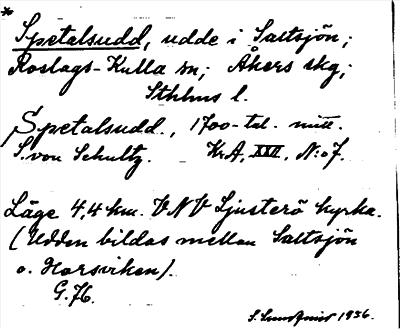 *
Spetalsudd, udde i Saltsjön;
Roslags-Kulla sn; Åkers skg;
Sthlms l.
Spetalsudd., 1700-tal. mitt.
S. von Schultz. Kr.A, XXII, N:o 7.
Läge 4,4 km. VNV Ljusterö kyrka.
(Udden bildas mellan Saltsjön
o. Horsviken).
G. 76.
S. 1936.